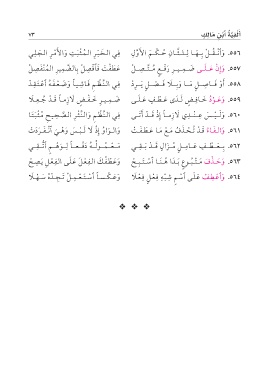 أَلْفِيَّةُ ابْنِ مَالِكٍ ٧٣
٥٥٦. وَانْقُلْ بِهَا لِلثَّانِ حُكْمَ الْأَوَّلِ فِي الْخَبَرِ الْمُثْبَتِ وَالْأَمْرِ الْجَلِي
٥٥٧. وَإِنْ عَلَى ضَمِيرِ رَفْعٍ مُتَّصِلْ عَطَفْتَ فَافْصِلْ بِالضَّمِيرِ الْمُنْفَصِلْ
٥٥٨. أَوْ فَاصِلٍ مَا وَبِلَا فَصْلٍ يَرِدْ فِي النَّظْمِ فَاشِيًا وَضَعْفَهُ اعْتَقِدْ
٥٥٩. وَعَوْدُ خَافِضٍ لَدَى عَطْفٍ عَلَى ضَمِيرِ خَفْضٍ لَازِمًا قَدْ جُعِلَا
٥٦٠. وَلَيْسَ عِنْدِي لَازِمًا إِذْ قَدْ أَتَى فِي النَّظْمِ وَالنَّثْرِ الصَّحِيحِ مُثْبَتَا
٥٦١. وَالْفَاءُ قَدْ تُحْذَفُ مَعْ مَا عَطَفَتْ وَالْوَاوُ إِذْ لَا لَبْسَ وَهْيَ انْفَرَدَتْ
٥٦٢. بِعَطْفِ عَامِلٍ مُزَالٍ قَدْ بَقِي مَعْمُولُهُ دَفْعًا لِوَهْمٍ اتُّقِي
٥٦٣. وَحَذْفَ مَتْبُوعٍ بَدَا هُنَا اسْتَبِحْ وَعَطْفُكَ الْفِعْلَ عَلَى الْفِعْلِ يَصِحْ
٥٦٤. وَاعْطِفْ عَلَى اسْمٍ شِبْهِ فِعْلٍ فِعْلَا وَعَكْسًا اسْتَعْمِلْ تَجِدْهُ سَهْلَا